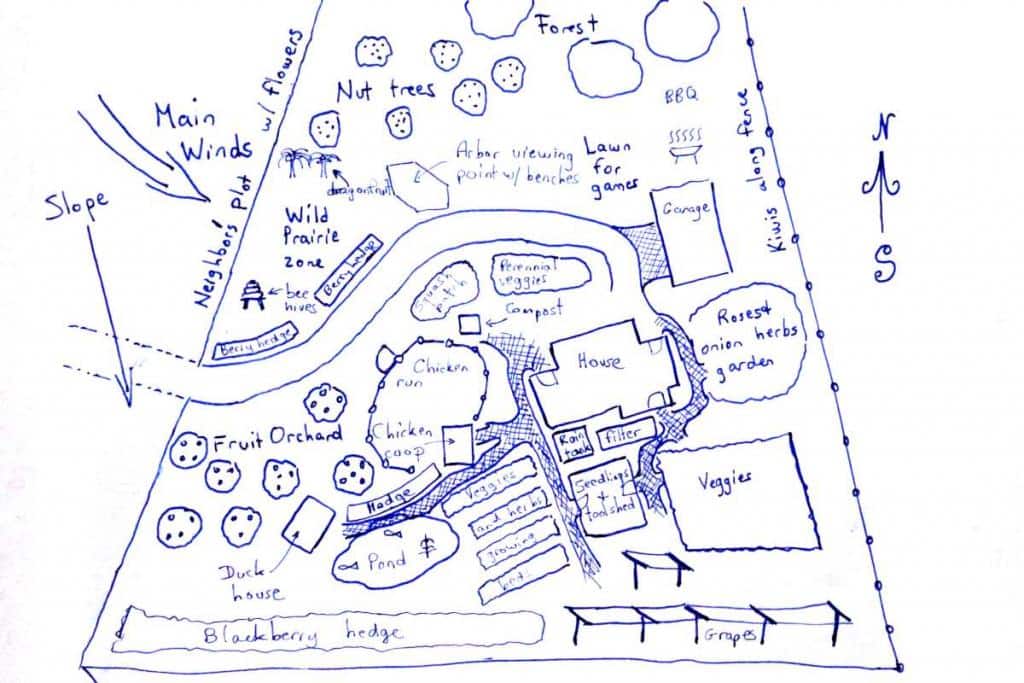 Forest
Nut trees
BBQ
Main
Winds
Neighbor's Plot w/ flowers
Arbor viewing
point w/ benches
Lawn
for
games
Kiwis along fence
N
S
dragonfruit
Slope
Wild
Prairie
zone
Garage
Berry hedge
bee
hives
Berry hedge
Squash
patch
Perennial
veggies
Compost
Roses+
onion herbs
garden
House
Chicken
run
Chicken
coop
Fruit Orchard
Rain
tank
filter
Hedge
Veggies
and herbs
growing
Seedlings
+
toolshed
Veggies
Pond
Duck
house
Blackberry hedge
Grapes